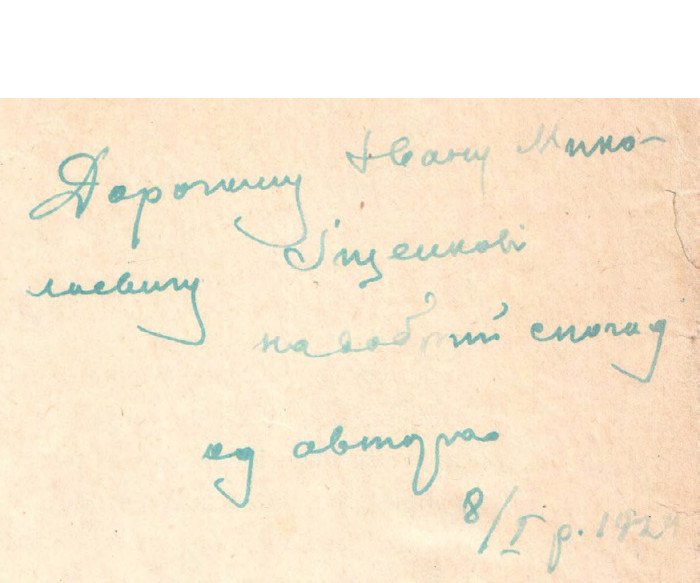 Дорогому Івану Мико-
лаєвичу Іщенкові
на добрий спогад
од автора
8/I р. 1929